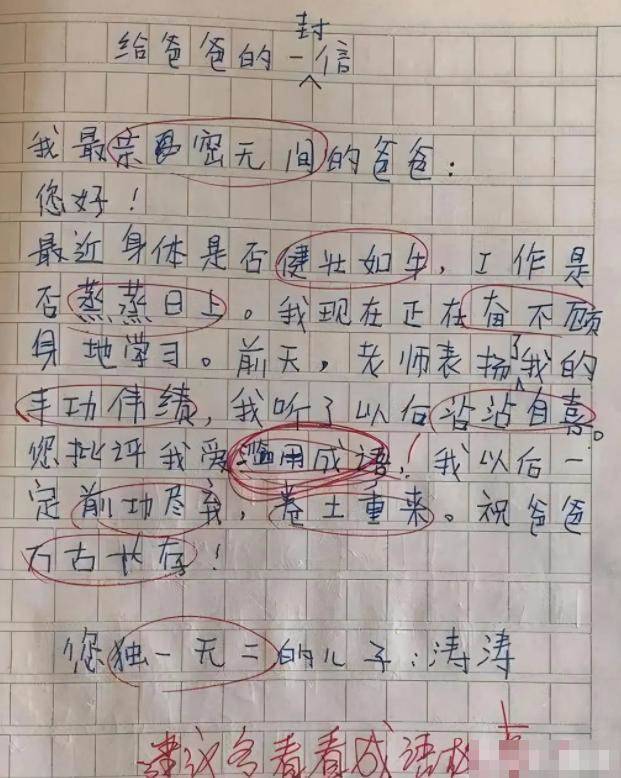 给爸爸的一封信
我最亲密无间的爸爸:
您好!
最近身体是否健壮如牛,工作是
否蒸蒸日上。我现在正在奋不顾
身地学习。前天,老师表扬了我的
丰功伟绩,我听了以后沾沾自喜。
您批评我爱滥用成语!我以后一
定前功尽弃,卷土重来。祝爸爸
万古长存!
您独一无二的儿子:涛涛
建议多看看成语